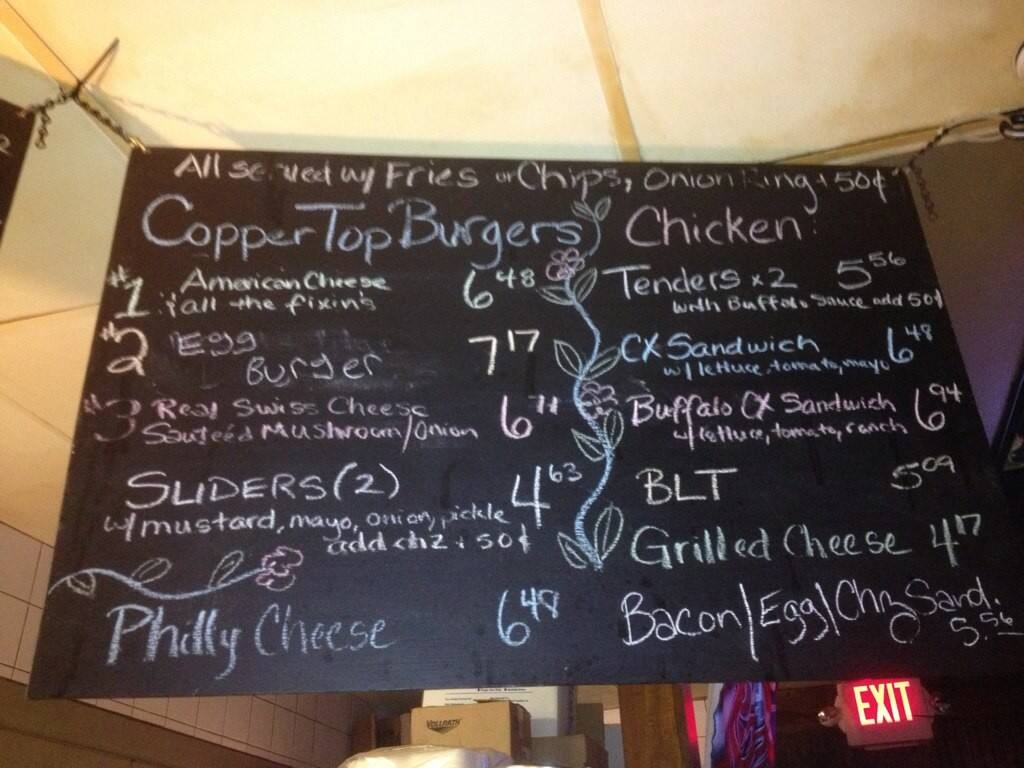 All served w/ Fries or Chips, Onion Ring + 50¢
Copper Top Burgers
#1 American Cheese 6 48
& all the fixin's
#2 Egg Burger 7 17
#3 Real Swiss Cheese 6 71
Sauteéd Mushroom/Onion
SLIDERS (2) 4 63
w/ mustard, mayo, onion, pickle
add chz + 50¢
Philly Cheese 6 48
Chicken:
Tenders x 2 5 56
with Buffalo Sauce add 50¢
CX Sandwich 6 48
w/ lettuce, tomato, mayo
Buffalo CX Sandwich 6 94
w/ lettuce, tomato, ranch
BLT 5 09
Grilled Cheese 4 17
Bacon/Egg/Chz Sand. 5.56
VOLLRATH
EXIT